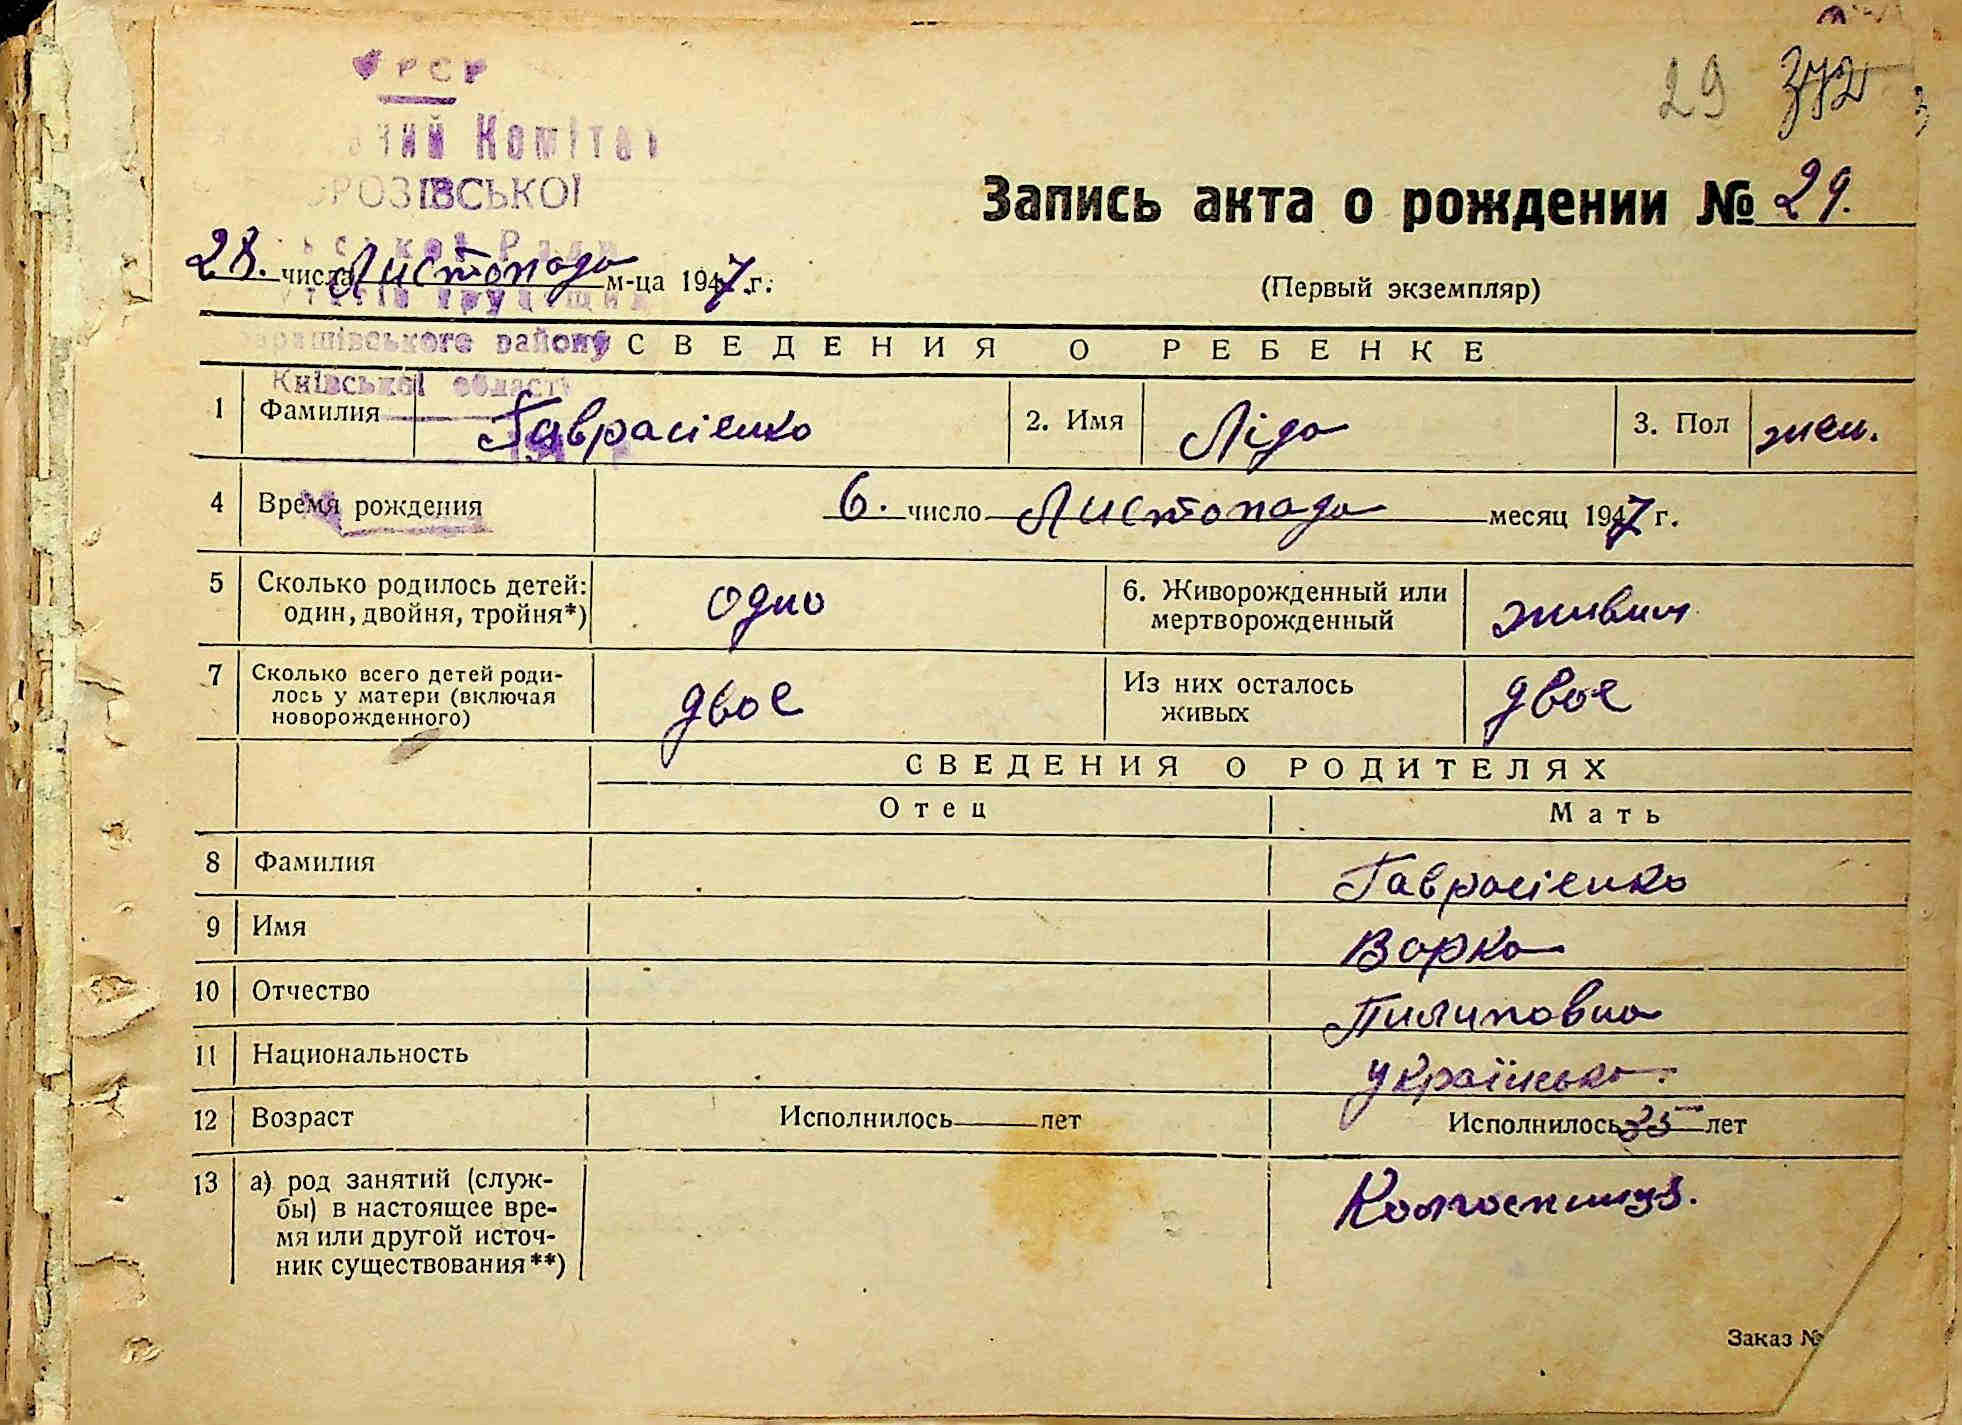 УРСР
29 372
ний Комітет
РОЗІВСЬКОЇ
Запись акта о рождении № 29.
ської Ради
28. числа Листопада м-ца 1947 г.
(Первый экземпляр)
району
СВЕДЕНИЯ О РЕБЕНКЕ
Київської області
1 Фамилия Гаврасієнко 2. Имя Ліда 3. Пол жен.
4 Время рождения 6. число Листопада месяц 1947 г.
5 Сколько родилось детей: один, двойня, тройня*) одно 6. Живорожденный или мертворожденный живим
7 Сколько всего детей родилось у матери (включая новорожденного) двое Из них осталось живых двое
СВЕДЕНИЯ О РОДИТЕЛЯХ
Отец Мать
8 Фамилия Гаврасієнко
9 Имя Варка
10 Отчество Пилиповна
11 Национальность українська.
12 Возраст Исполнилось лет Исполнилось 35 лет
13 а) род занятий (служ-
бы) в настоящее вре-
мя или другой источ-
ник существования**)
Колгоспниця.
Заказ №